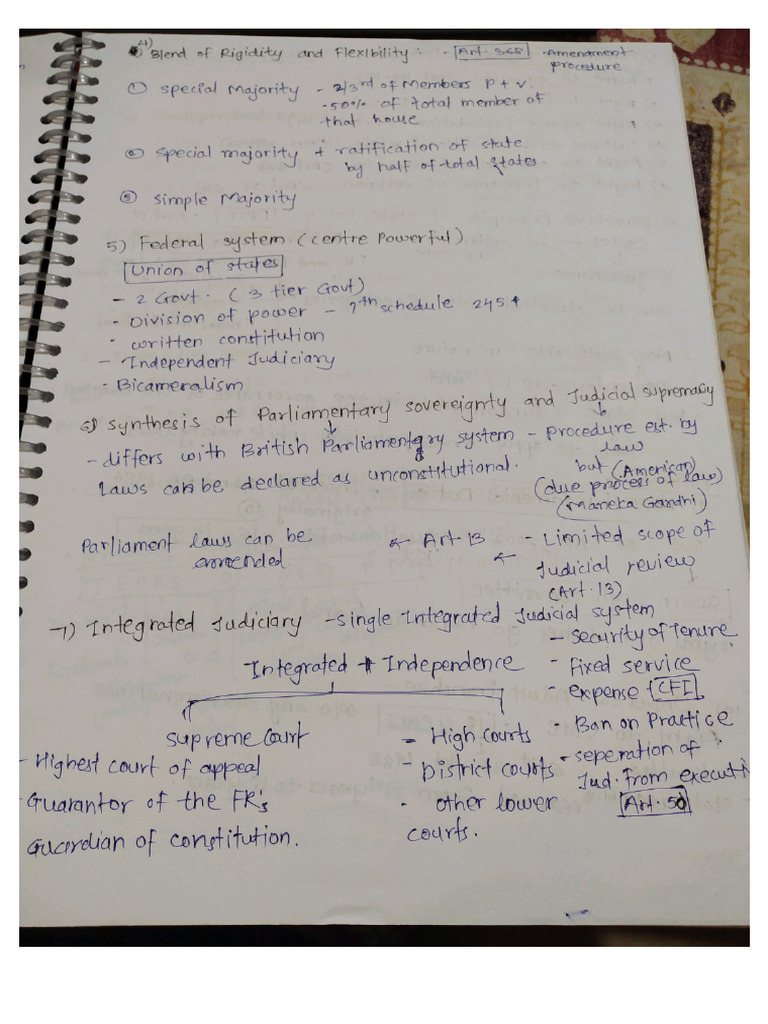 4) Blend of Rigidity and Flexibility: - Art. 368 - Amendment procedure
① special Majority - 2/3rd of Members P + V.
- 50% of total member of
that house
② special majority + ratification of state
by half of total states
③ simple Majority
5) Federal system (centre Powerful)
Union of states
- 2 Govt. (3 tier Govt)
- Division of power - 7th schedule 245 +
- written constitution
- Independent Judiciary
- Bicameralism
6) synthesis of Parliamentary sovereignty and Judicial supremacy
- differs with British Parliamentary system - procedure est. by
law
Laws can be declared as unconstitutional.
but (American)
(due process of law)
(Maneka Gandhi)
Parliament laws can be ← Art 13 - Limited scope of
amended ← Judicial review
(Art. 13)
7) Integrated Judiciary - single Integrated Judicial system
- security of Tenure
Integrated + Independence - fixed service
- expense CFI
supreme court = High courts - Ban on Practice
- Highest court of appeal - District courts - seperation of
Jud. from executi
- Guarantor of the FR's - other lower Art. 50
Guardian of constitution. courts.